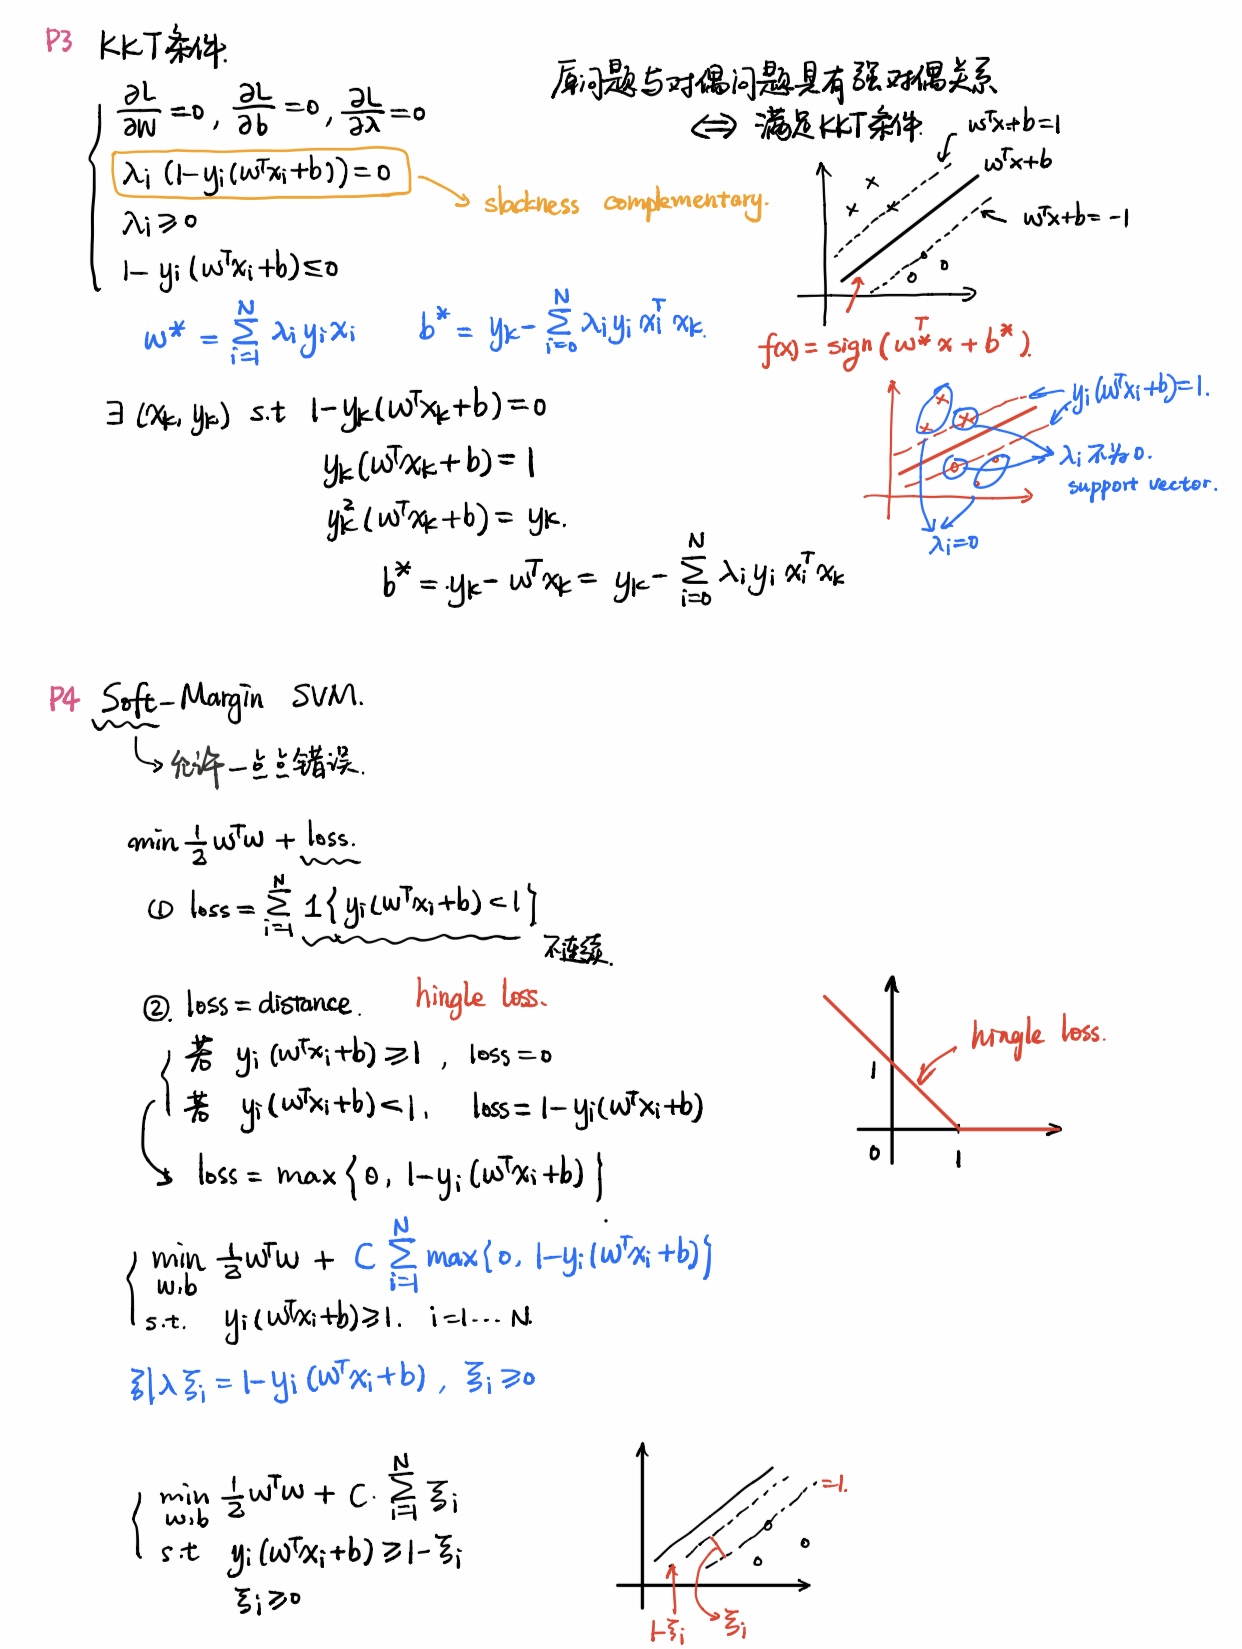 P3 KKT条件.
∂L/∂w=0, ∂L/∂b=0, ∂L/∂λ=0
λi(1-yi(wᵀxi+b))=0
slackness complementary.
λi≥0
1-yi(wᵀxi+b)≤0
原问题与对偶问题具有强对偶关系
⟺ 满足KKT条件.
wᵀx+b=1
wᵀx+b
wᵀx+b=-1
w* = ∑_{i=1}^{N} λi yi xi   b* = yk - ∑_{i=0}^{N} λi yi xiᵀ xk.
f(x)=sign(w*ᵀx+b*).
∃(xk, yk) s.t 1-yk(wᵀxk+b)=0
yk(wᵀxk+b)=1
yk²(wᵀxk+b)=yk.
b* = yk-wᵀxk = yk - ∑_{i=0}^{N} λi yi xiᵀ xk
yi(wᵀxi+b)=1.
λi不为0.
support vector.
λi=0
P4 Soft-Margin SVM.
允许一点点错误.
min ½wᵀw + loss.
① loss = ∑_{i=1}^{N} 1{yi(wᵀxi+b)<1}
不连续.
②. loss=distance. hingle loss.
若 yi(wᵀxi+b)≥1, loss=0
若 yi(wᵀxi+b)<1, loss=1-yi(wᵀxi+b)
loss = max{0, 1-yi(wᵀxi+b)}
hingle loss.
1
0
1
min_{w,b} ½wᵀw + C ∑_{i=1}^{N} max{0, 1-yi(wᵀxi+b)}
s.t. yi(wᵀxi+b)≥1. i=1…N.
引入ξi=1-yi(wᵀxi+b), ξi≥0
min_{w,b} ½wᵀw + C·∑_{i=1}^{N} ξi
s.t yi(wᵀxi+b)≥1-ξi
ξi≥0
=1.
1-ξi
ξi